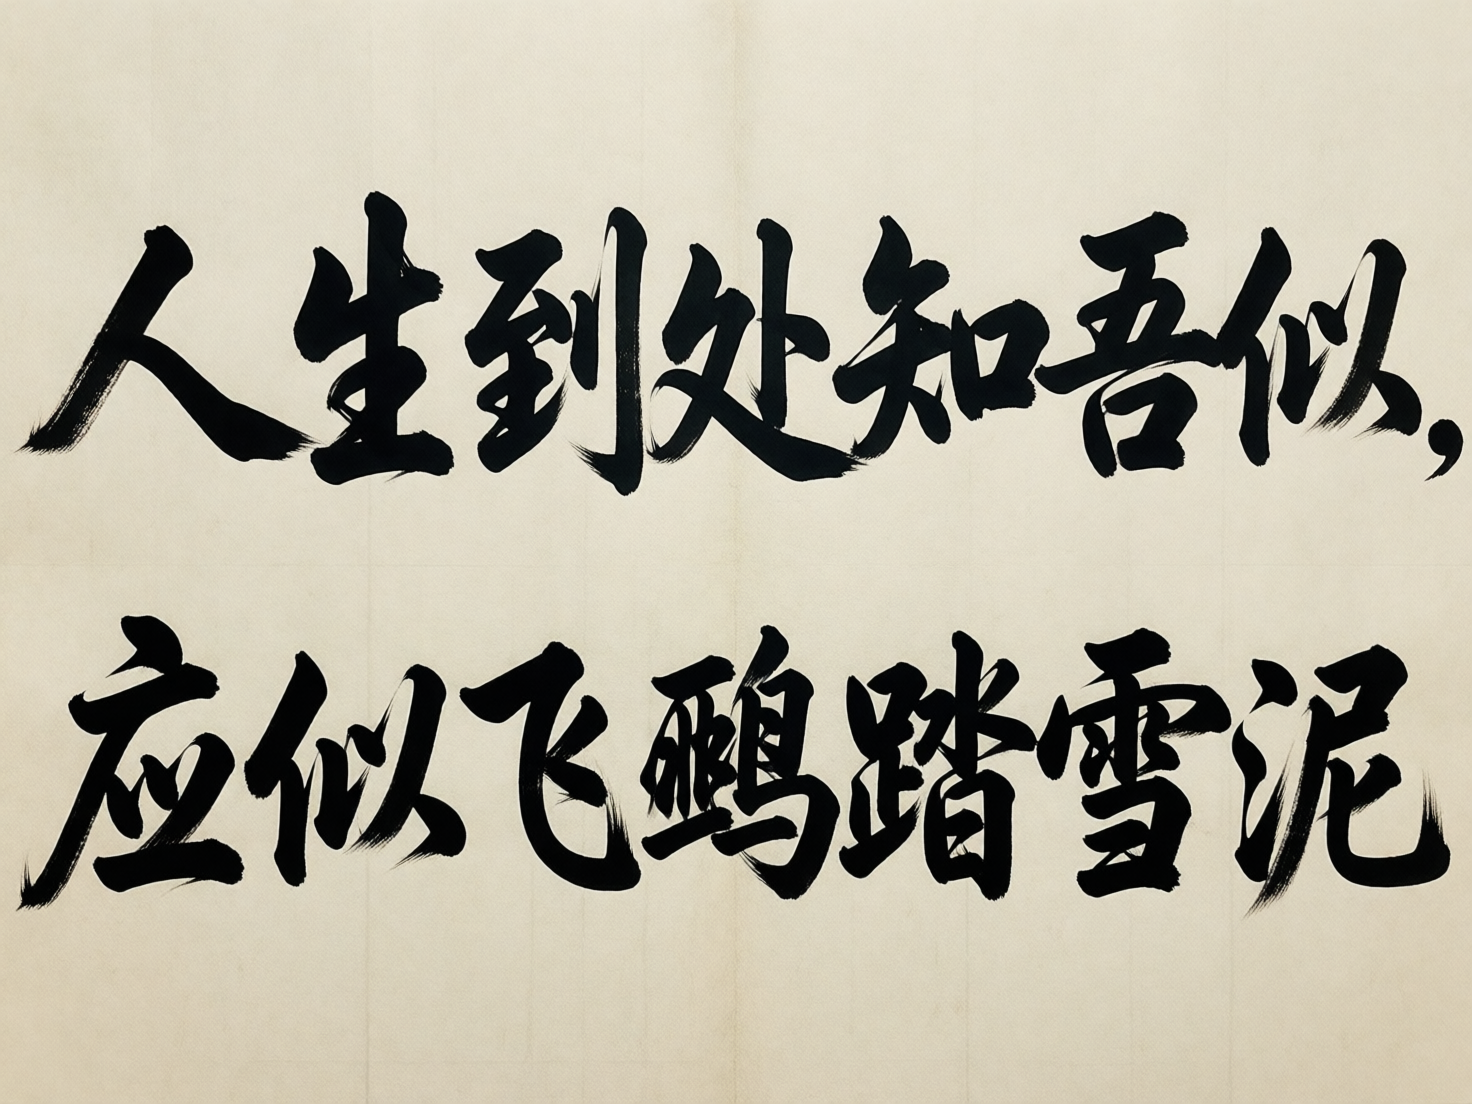 人生到处知吾似,
应似飞踏雪泥